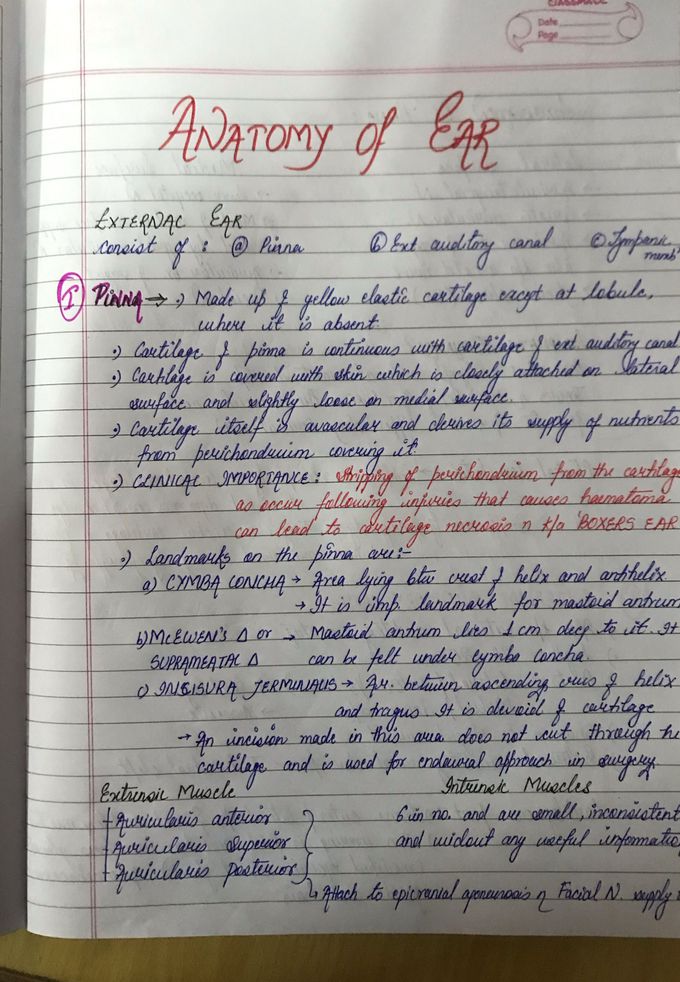 CLASSMATE
Date
Page
ANATOMY of EAR
EXTERNAL EAR
consist of : ⓐ Pinna ⓑ Ext auditory canal ⓒ Tympanic memb
I PINNA → •) Made up of yellow elastic cartilage except at lobule,
where it is absent.
•) Cartilage of pinna is continuous with cartilage of ext auditory canal
•) Cartilage is covered with skin which is closely attached on lateral
surface and slightly loose on medial surface.
•) Cartilage itself is avascular and derives its supply of nutrients
from perichondrium covering it.
•) CLINICAL IMPORTANCE : Stripping of perichondrium from the cartilage
as occur following injuries that causes haematoma
can lead to cartilage necrosis n k/a 'BOXERS EAR
•) Landmarks on the pinna are:-
a) CYMBA CONCHA → Area lying btw crest of helix and antihelix
→ It is imp. landmark for mastoid antrum
b) McEWEN'S Δ or → Mastoid antrum lies 1 cm deep to it. It
SUPRAMEATAL Δ can be felt under cymba concha.
c) INCISURA TERMINALIS → Ar. between ascending crus of helix
and tragus. It is devoid of cartilage
→ An incision made in this area does not cut through the
cartilage and is used for endaural approach in surgery.
Extrensic Muscle Intrensic Muscles
Auricularis anterior 6 in no. and are small, inconsistent
Auricularis superior and widout any useful informatio
Auricularis posterior
↳ Attach to epicranial aponeurosis n Facial N. supply